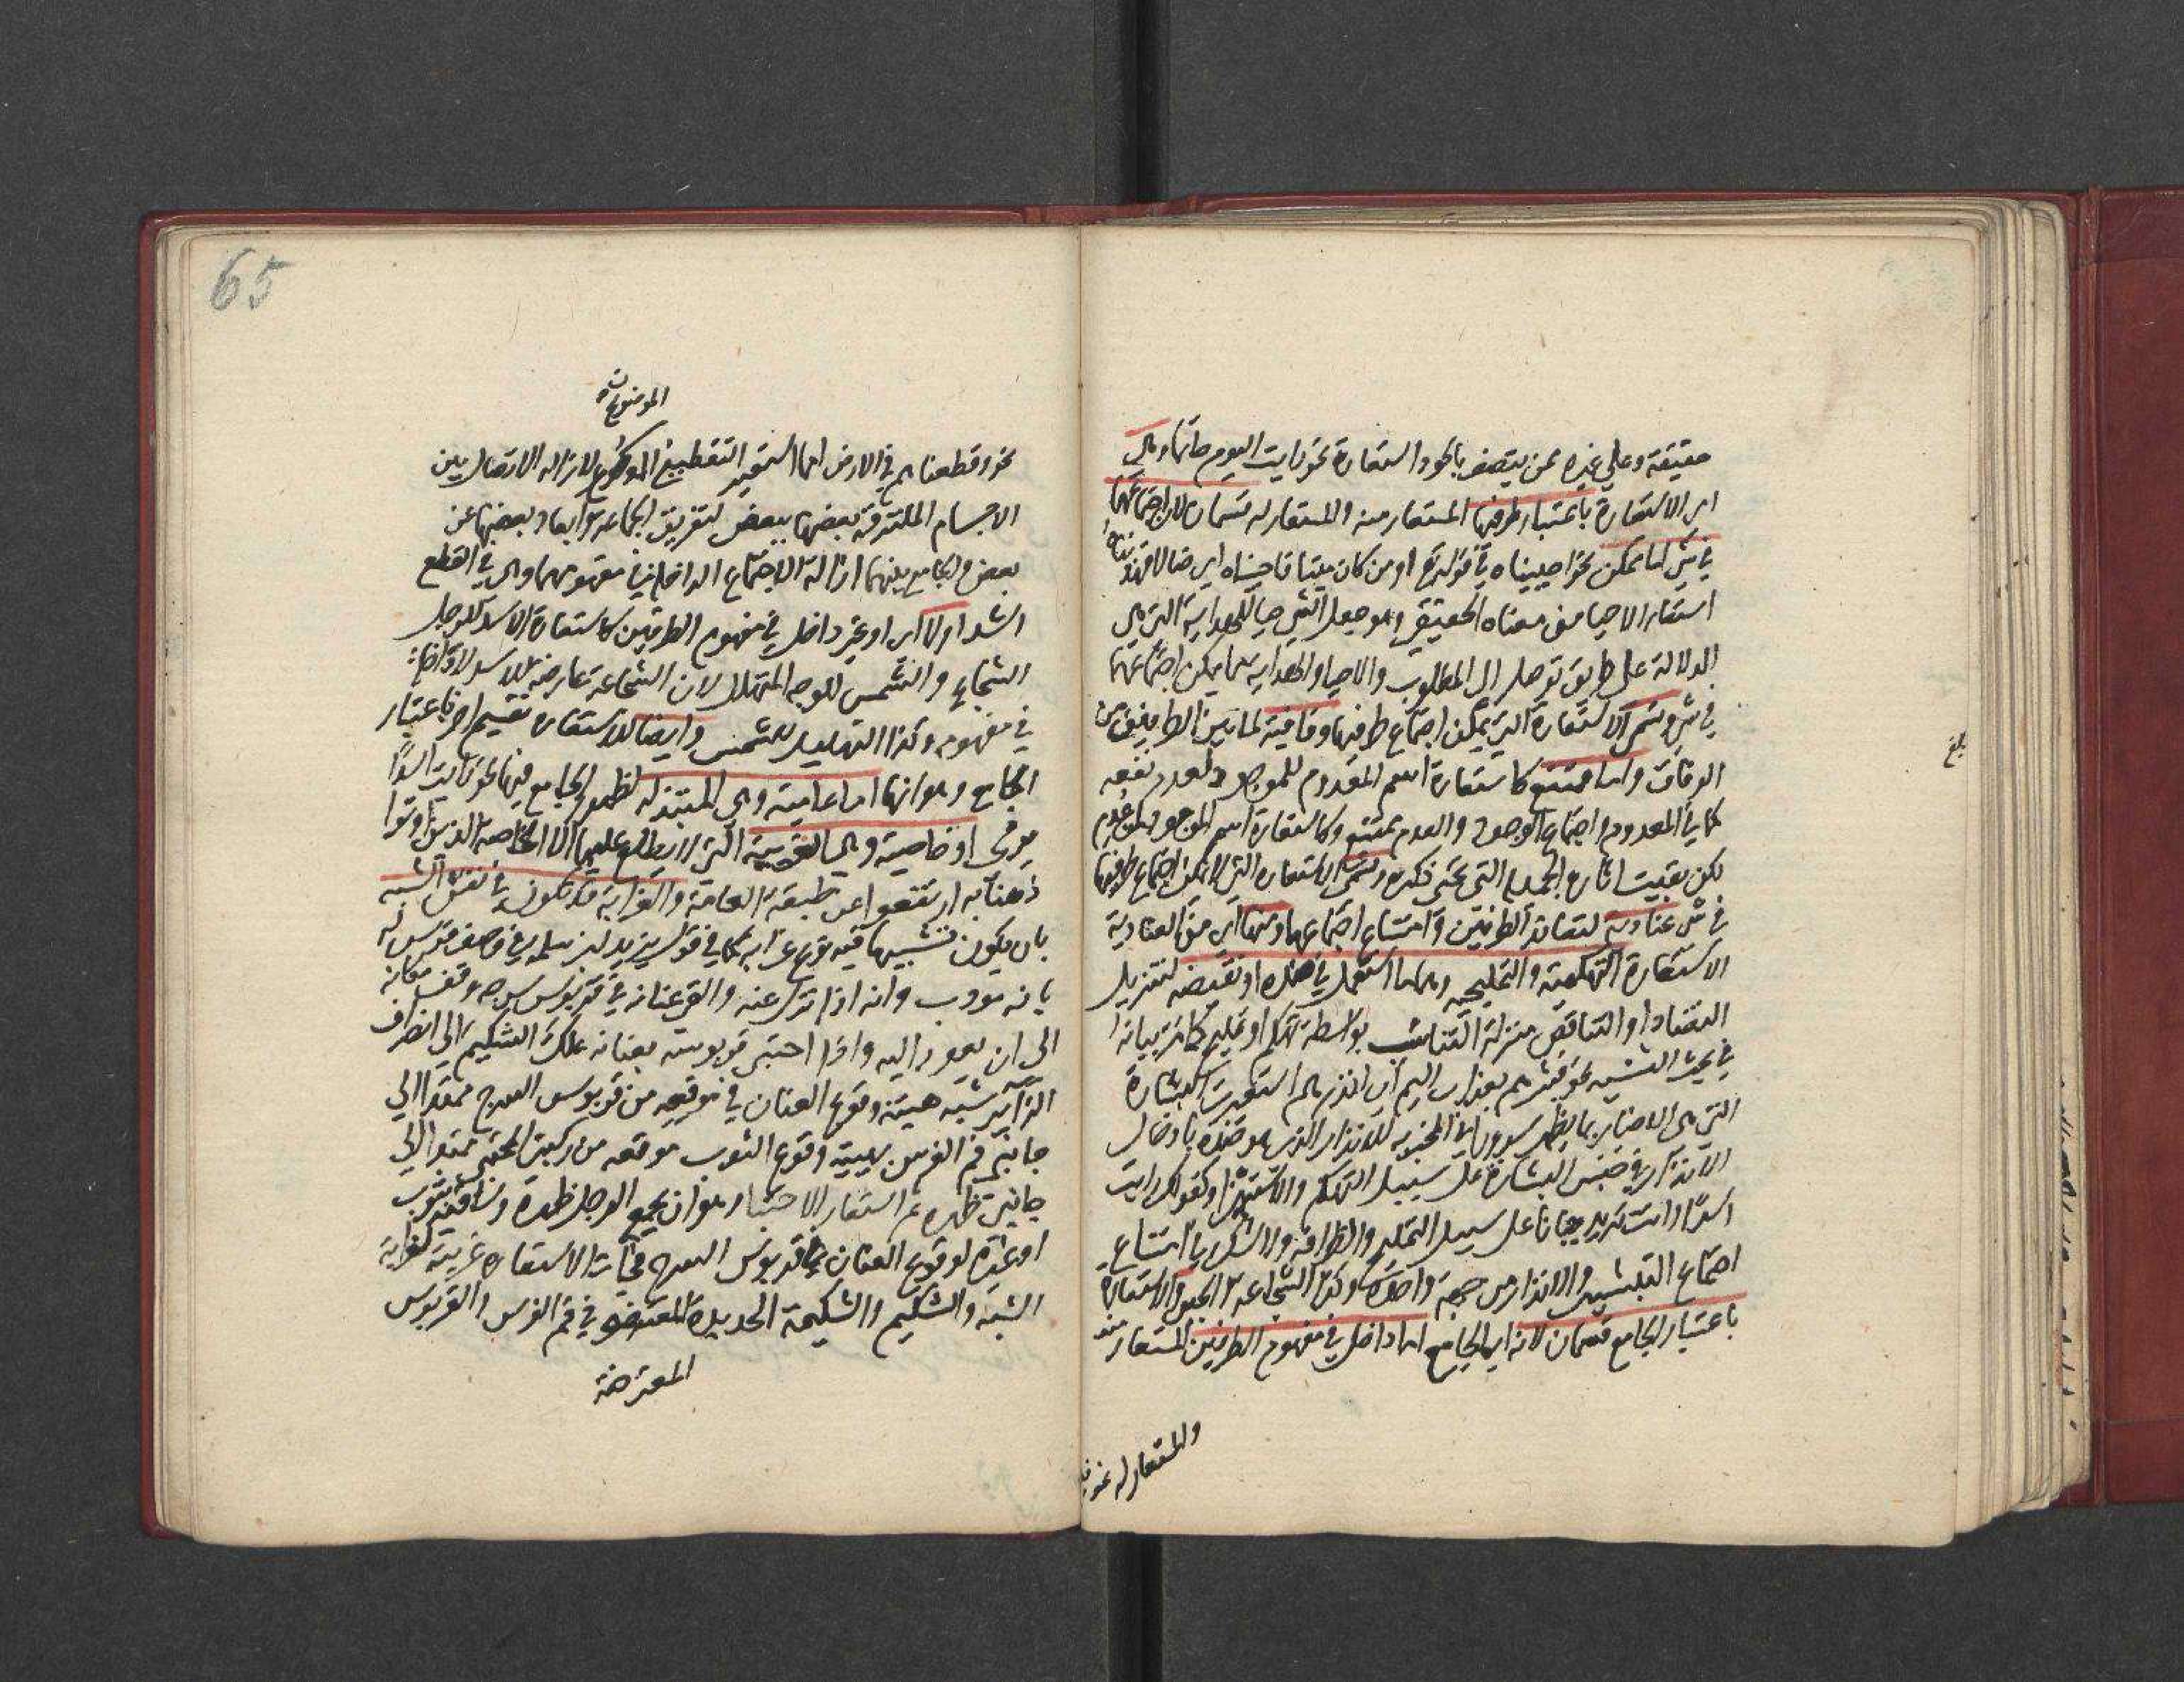 حقيقة وعلى غيره ممن يتصف بالجود استعارة نحو رايت اليوم حاتما وهي
اي الاستعارة باعتبار طرفيها المستعار منه والمستعار له قسمان لان اجتماعهما
في شئ اما ممكن نحو احييناه في قوله تع اومن كان ميتا فاحييناه اي ضالا فهديناه
استعار الاحيا من معناه الحقيقي وهو جعل الشئ حيا للهداية التي هي
الدلالة على طريق توصل الى المطلوب والاحيا والهداية مما يمكن اجتماعهما
في شئ وتسمى الاستعارة التي يمكن اجتماع طرفيها وفاقية لما بين الطرفين من
الوفاق واما ممتنع كاستعارة اسم المعدوم للموجود لعدم نفعه
كما في المعدوم واجتماع الوجود والعدم ممتنع وكاستعارة اسم الموجود لمن عدم
لكن بقيت اثاره الجميلة التي تحيى ذكره وتسمى الاستعارة التي لا يمكن اجتماع طرفيها
في شئ عنادية لتعاند الطرفين وامتناع اجتماعهما ومنها اي من العنادية
الاستعارة التهكمية والتمليحية وهما ما استعمل في ضده او نقيضه لتنزيل
التضاد او التناقض منزلة التناسب بواسطة تهكم او تمليح كما مر بيانه
في بحث التشبيه نحو فبشرهم بعذاب اليم اي انذرهم استعيرت البشارة
التي هي الاخبار بما يظهر سرورا في المخبر به للانذار الذي هو ضده بادخال
الانذار في جنس البشارة على سبيل التهكم والاستهزا وكقولك رايت
اسدا وانت تريد جبانا على سبيل التمليح والظرافة ولا شك في امتناع
اجتماع التبشير والانذار من جهة واحدة وكذا الشجاعة والجبن والاستعارة
باعتبار الجامع قسمان لانه اي الجامع اما داخل في مفهوم الطرفين المستعار منه
والمستعار له نحو
بلغ
65
الموضوع
نحو وقطعناهم في الارض امما استعير التقطيع الموضوع لازالة الاتصال بين
الاجسام الملتزقة بعضها ببعض لتفريق الجماعة وابعاد بعضها عن
بعض والجامع بينهما ازالة الاجتماع الداخلة في مفهومهما وهي في القطع
اشد اولا اي او غير داخل في مفهوم الطرفين كاستعارة الاسد للرجل
الشجاع والشمس للوجه المتهلل لان الشجاعة عارضة للاسد لا داخلة
في مفهومه وكذا التهلل للشمس وايضا للاستعارة تقسيم اخر باعتبار
الجامع وهو انها اما عامية وهي المبتذلة لظهور الجامع فيها نحو رايت اسدا
يرمي او خاصية وهي الغريبة التي لا يطلع عليها الا الخاصة الذين اوتوا
ذهنا به ارتفعوا عن طبقة العامة والغرابة قد تكون في نفس الشبه
بان يكون تشبيها فيه نوع غرابة كما في قول يزيد بن مسلمة في وصف فرس له
بانه مودب وانه اذا نزل عنه والقى عنانه في قربوس سرجه وقف مكانه
الى ان يعود اليه واذا احتبى قربوسه بعنانه علك الشكيم الى انصراف
الزائر شبه هيئة وقوع العنان في موقعه من قربوس السرج ممتدا الى
جانبي فم الفرس بهيئة وقوع الثوب موقعه من ركبتي المحتبي ممتدا الى
جانبي ظهره ثم استعار الاحتبا وهو ان يجمع الرجل ظهره وساقيه بثوب
او غيره لوقوع العنان في قربوس السرج فجات الاستعارة غريبة لغرابة
الشبه والشكيم والشكيمة الحديدة المعترضة في فم الفرس والقربوس
المعترضة